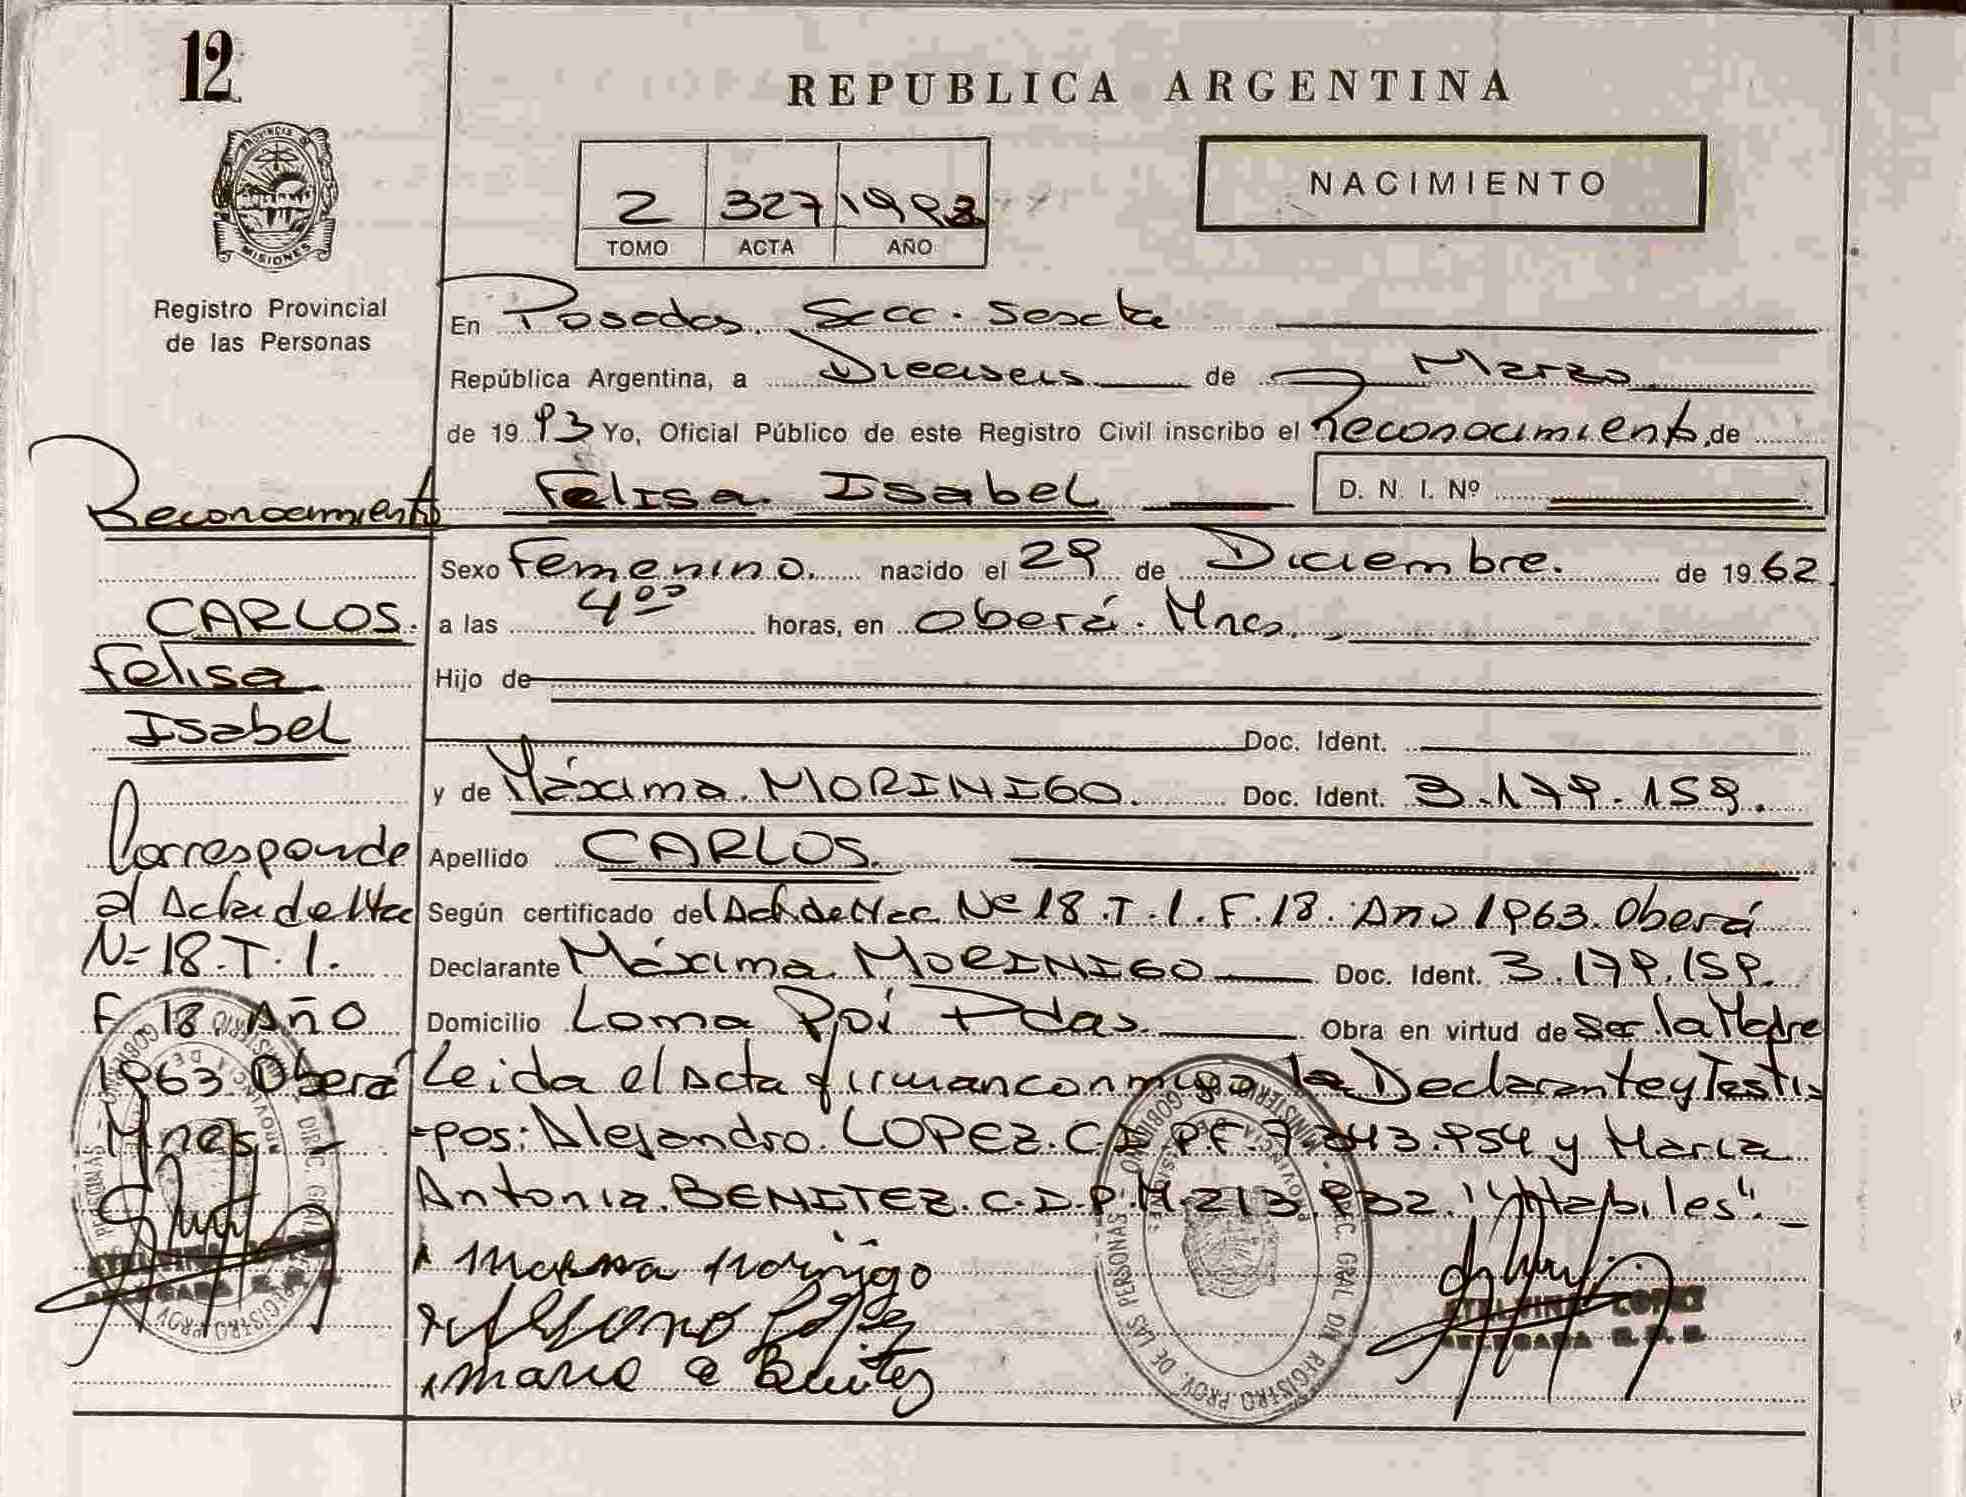 12
REPUBLICA ARGENTINA
PROVINCIA DE
MISIONES
Registro Provincial
de las Personas
2 327 1993
TOMO ACTA AÑO
NACIMIENTO
En Posadas, Secc. Sexta
República Argentina, a Dieciseis de Marzo
de 1993 Yo, Oficial Público de este Registro Civil inscribo el Reconocimiento, de
Felisa Isabel D. N. I. Nº
Sexo Femenino. nacido el 29 de Diciembre. de 1962
a las 4⁰⁰ horas, en Oberá. Mnes.
Hijo de
Doc. Ident.
y de Máxima MORINIGO. Doc. Ident. 3.179.159.
Apellido CARLOS.
Según certificado del Act. de Nac Nº 18. T. 1. F. 18. Ano 1963. Oberá
Declarante Máxima MORINIGO Doc. Ident. 3.179.159.
Domicilio Loma Poí Pdas. Obra en virtud de ser la Madre
Leida el Acta firman conmigo la Declarante y Testi-
-gos: Alejandro LOPEZ. C.I. PF. 7.343.954 y Maria
Antonia BENITEZ. C.I.P.M. 213.932. "Habiles".
Maxima Morinigo
Lopez
Maria a Benitez
Reconocimiento
CARLOS.
Felisa
Isabel
Corresponde
al Acta de Nac
Nº 18. T. 1.
F. 18 Año
1963. Oberá
Mnes.
REGISTRO PROV. DE LAS PERSONAS